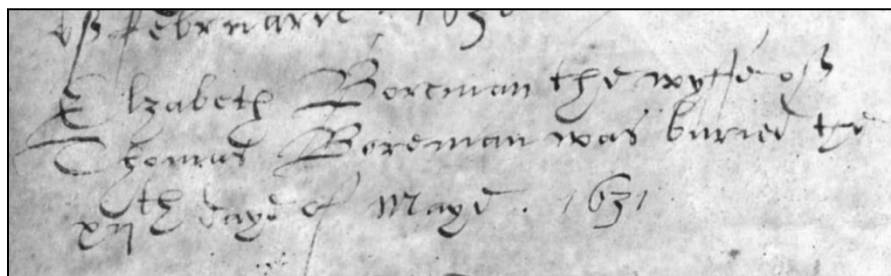 of februarie 1630
Elzabeth Boreman the wyffe of
Thomas Boreman was buried the
xijth daye of Maye. 1631